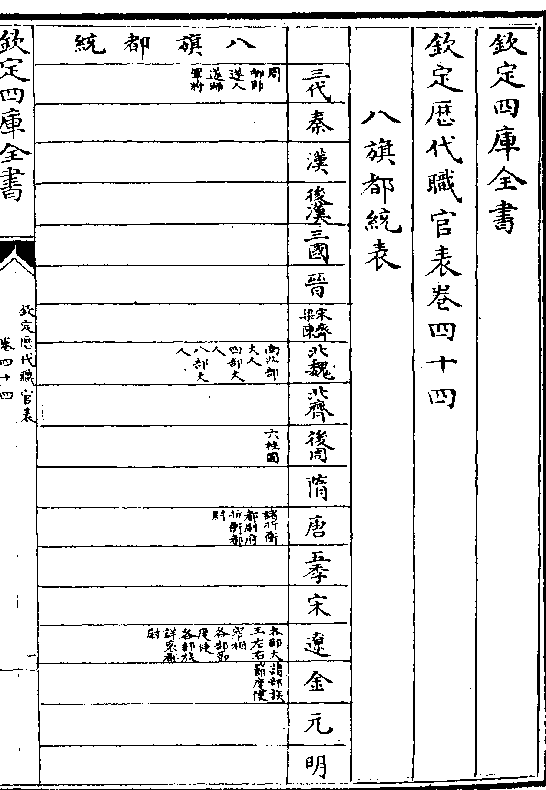 欽定四庫全書
欽定歷代職官表卷四十四
八旗都統表
三代
秦
漢
後漢
三國
晉
宋齊
梁陳
北魏
北齊
後周
隋
唐
五季
宋
遼
金
元
明
八旗都統
周
遂人
遂師
軍將
南北部
大人
四部大
人
八部大
人
六柱國
都尉府
折衝都
尉
王左右
宰相
各部節
度使
各部族
諸部族
節度使
欽定四庫全書
欽定歷代職官表
卷四十四